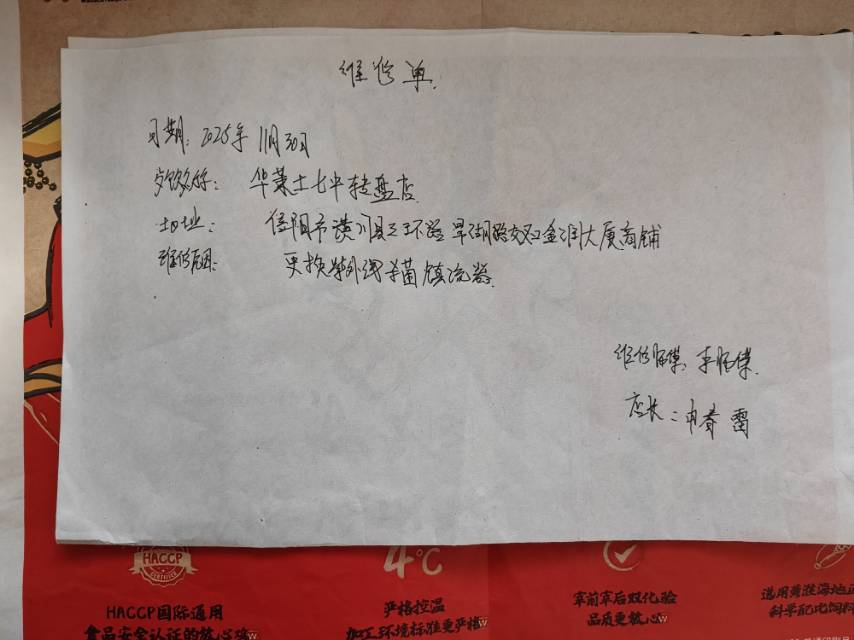 维修单.
日期: 2025年 11月30日
名称: 华莱士七中转盘店
地址: 信阳市潢川县三环路旱湖路交汇金润大厦商铺
维修原因: 更换紫外线杀菌镇流器.
维修师傅: 李师傅.
店长: 春雷
HACCP
CERTIFIED
HACCP国际通用
食品安全认证的放心鸡
4℃
严格控温
加工环境标准更严格
宰前宰后双化验
品质更放心
选用黄淮海地
科学配比饲料